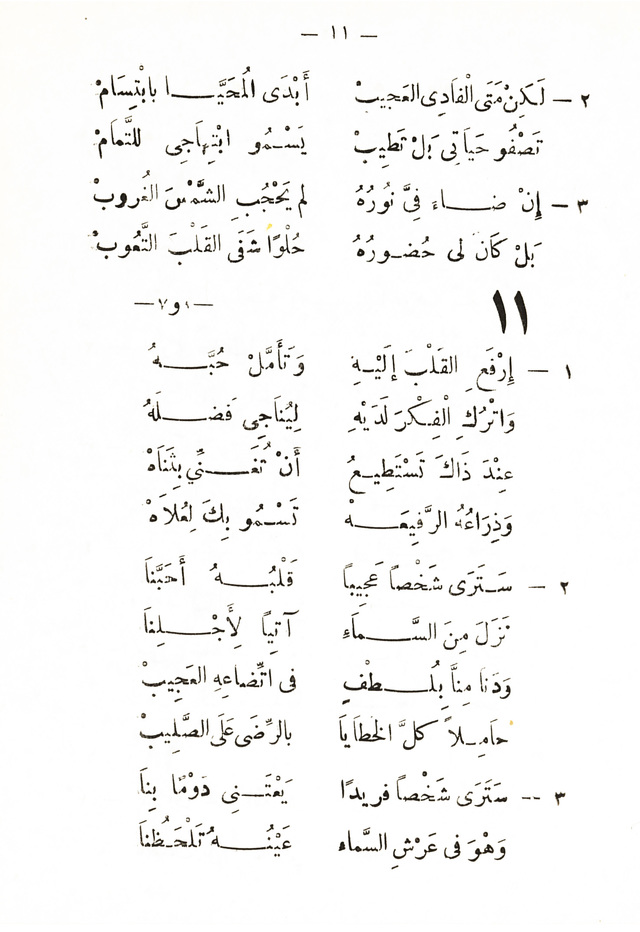 — ١١ —
٢ — لَكِنْ مَتَى الْفَادِى العَجِيبْ أَبْدَى الْمُحَيَّـــا بِابْتِسَامْ
تَصْفُو حَيَاتِى بَلْ تَطِيبْ يَسْـمُو ابْتِهَاجِى للتَّمَامْ
٣ — إِنْ ضـــاءَ فِىَّ نُورُهُ لم يَحْجُبِ الشَّمْسَ الغُروبْ
بَلْ كَانَ لى حُضـورُهُ حُلْوًا شَفَى القَلْبَ التَّعُوبْ
١١ —٧و١—
١ — إِرْفَعِ القَلْبَ إِلَيْـهِ وَتَأَمَّلْ حُبَّـــهُ
وَاتْرُكِ الْفِكْرَ لَدَيْهِ لِيُنَاجِى فَضـــلَهُ
عِنْدَ ذَاكَ تَسْتَطِيـعُ أَنْ تُغَـــنِّى بِثَنَاهْ
وَذِرَاعُهُ الرَّفِيعَـــهْ تَسْـمُو بِكَ لِعُلاَهْ
٢ — سَـتَرَى شَخْصاً عَجِيباً قَلْبُـــهُ أَحَبَّنَا
نَزَلَ مِنَ السَّـــمَاءِ آتِيًا لِأَجْـــلِنَا
وَدَنَا مِنَّا بِلُـــطْفٍ فى اتِّضَاعِهِ العَجِيبْ
حَامِـلاً كلَّ الخطَايَا بالرِّضَى عَلَى الصَّلِيبْ
٣ -- سَتَرَى شَخْصاً فريدًا يَعْتَـــنِى دَوْمًا بِنَا
وَهْوَ فى عَرْشِ السَّماء عَيْنُـــهُ تَلْحَـظُنَا